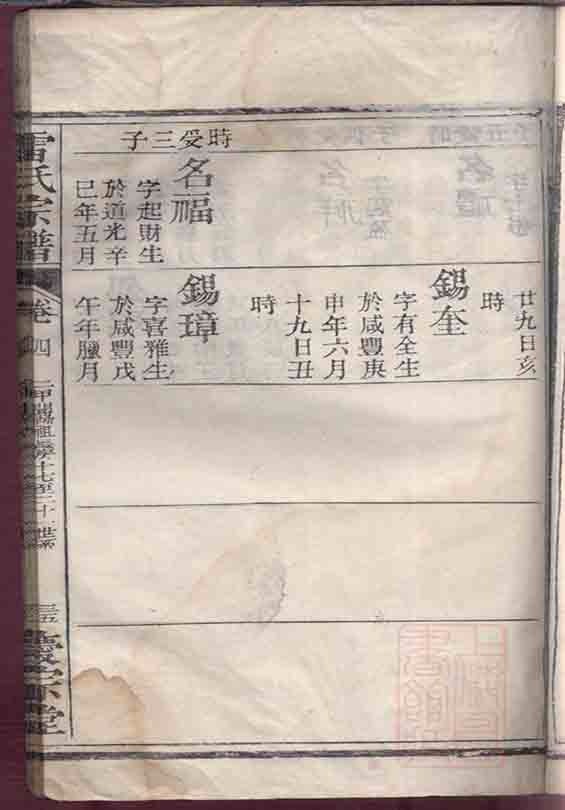 時受三子
名福
字起財生
於道光辛
巳年五月
廿九日亥
時
錫奎
字有全生
於咸豐庚
申年六月
十九日丑
時
錫璋
字喜雅生
於咸豐戊
午年臘月
雷氏宗譜
卷四
慶宗堂